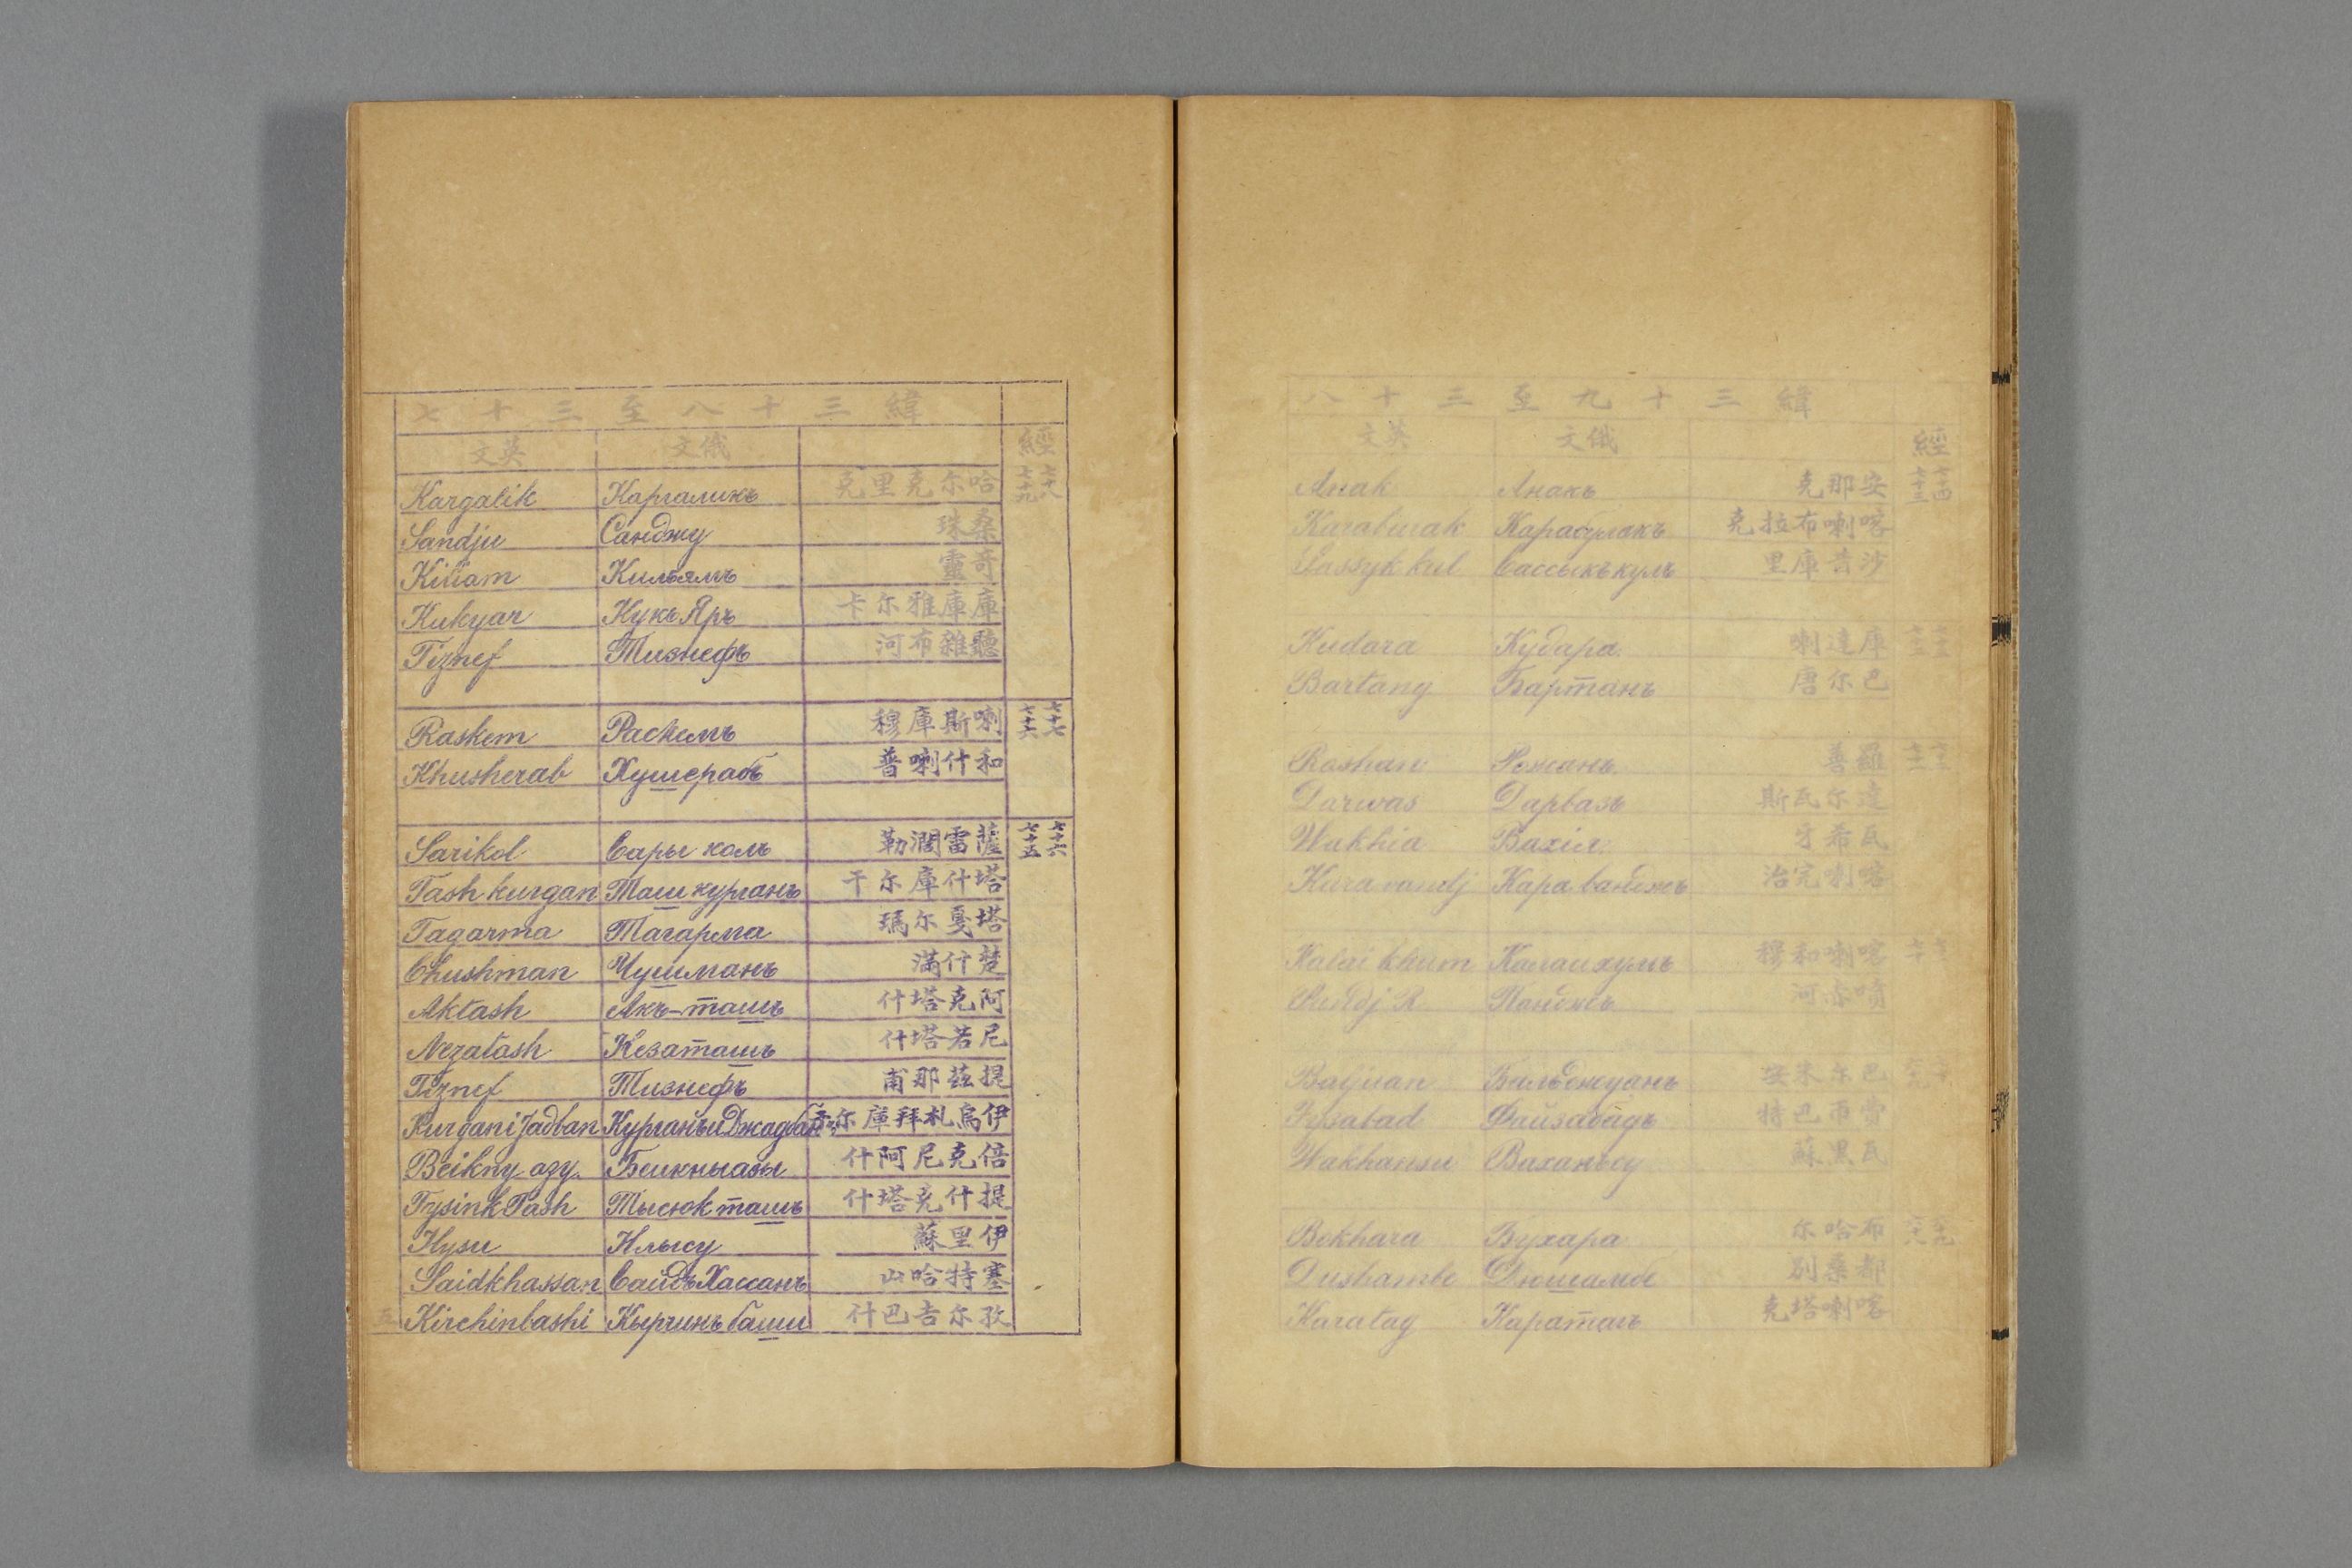 八十三至九十三緯
文英 文俄 經
Anak Анакъ 克那安 七十四 七十三
Karaburak Карабулакъ 克拉布喇喀
Sassyk kul Сассыкъ куль 里庫昔沙
Kudara Кудара 喇達庫
Bartang Бартанъ 唐尔巴
Roshan Рошанъ 善羅
Darwas Дарвазъ 斯瓦尔達
Wakhia Вахія 牙希瓦
Kara vandj Кара ванджъ 治完喇喀
Kalai khum Калаихумъ 穆和喇喀
Pandj R. Пянджъ 河赤噴
Baljuan Бальджуанъ 安朱尔巴
Fysabad Файзабадъ 特巴币費
Wakhansu Ваханьсу 蘇黑瓦
Bokhara Бухара 尔哈布
Dushambe Дюшамбе 別桑都
Karatag Каратагъ 克塔喇喀
七十三至八十三緯
文英 文俄 經
Kargalik Каргаликъ 克里克尔哈 七十八 七十九
Sandju Санджу 珠桑
Kiliam Кильямъ 靈奇
Kukyar Кукъ Яръ 卡尔雅庫庫
Tiznef Тизнефъ 河布雜聽
Raskem Раскемъ 穆庫斯喇 七十七 七十六
Khusherab Хушерабъ 普喇什和
Sarikol Сары колъ 勒濶雷薩 七十六 七十五
Tash kurgan Таш курганъ 干尔庫什塔
Tagarma Тагарма 瑪尔戛塔
Chushman Чушманъ 滿什楚
Aktash Акъ-ташъ 什塔克阿
Nezatash Незаташъ 什塔若尼
Tiznef Тизнефъ 甫那兹提
Kurgani Jadban Курганъи Джадбай 尔庫拜札烏伊
Beikny azy Беикныазы 什阿尼克倍
Tysink Tash Тысюк ташъ 什塔克什提
Ilysu Илысу 蘇里伊
Saidkhassan Саидъ Хассанъ 山哈特塞
Kirchinbashi Кырчинъ баши 什巴吉尔孜
五